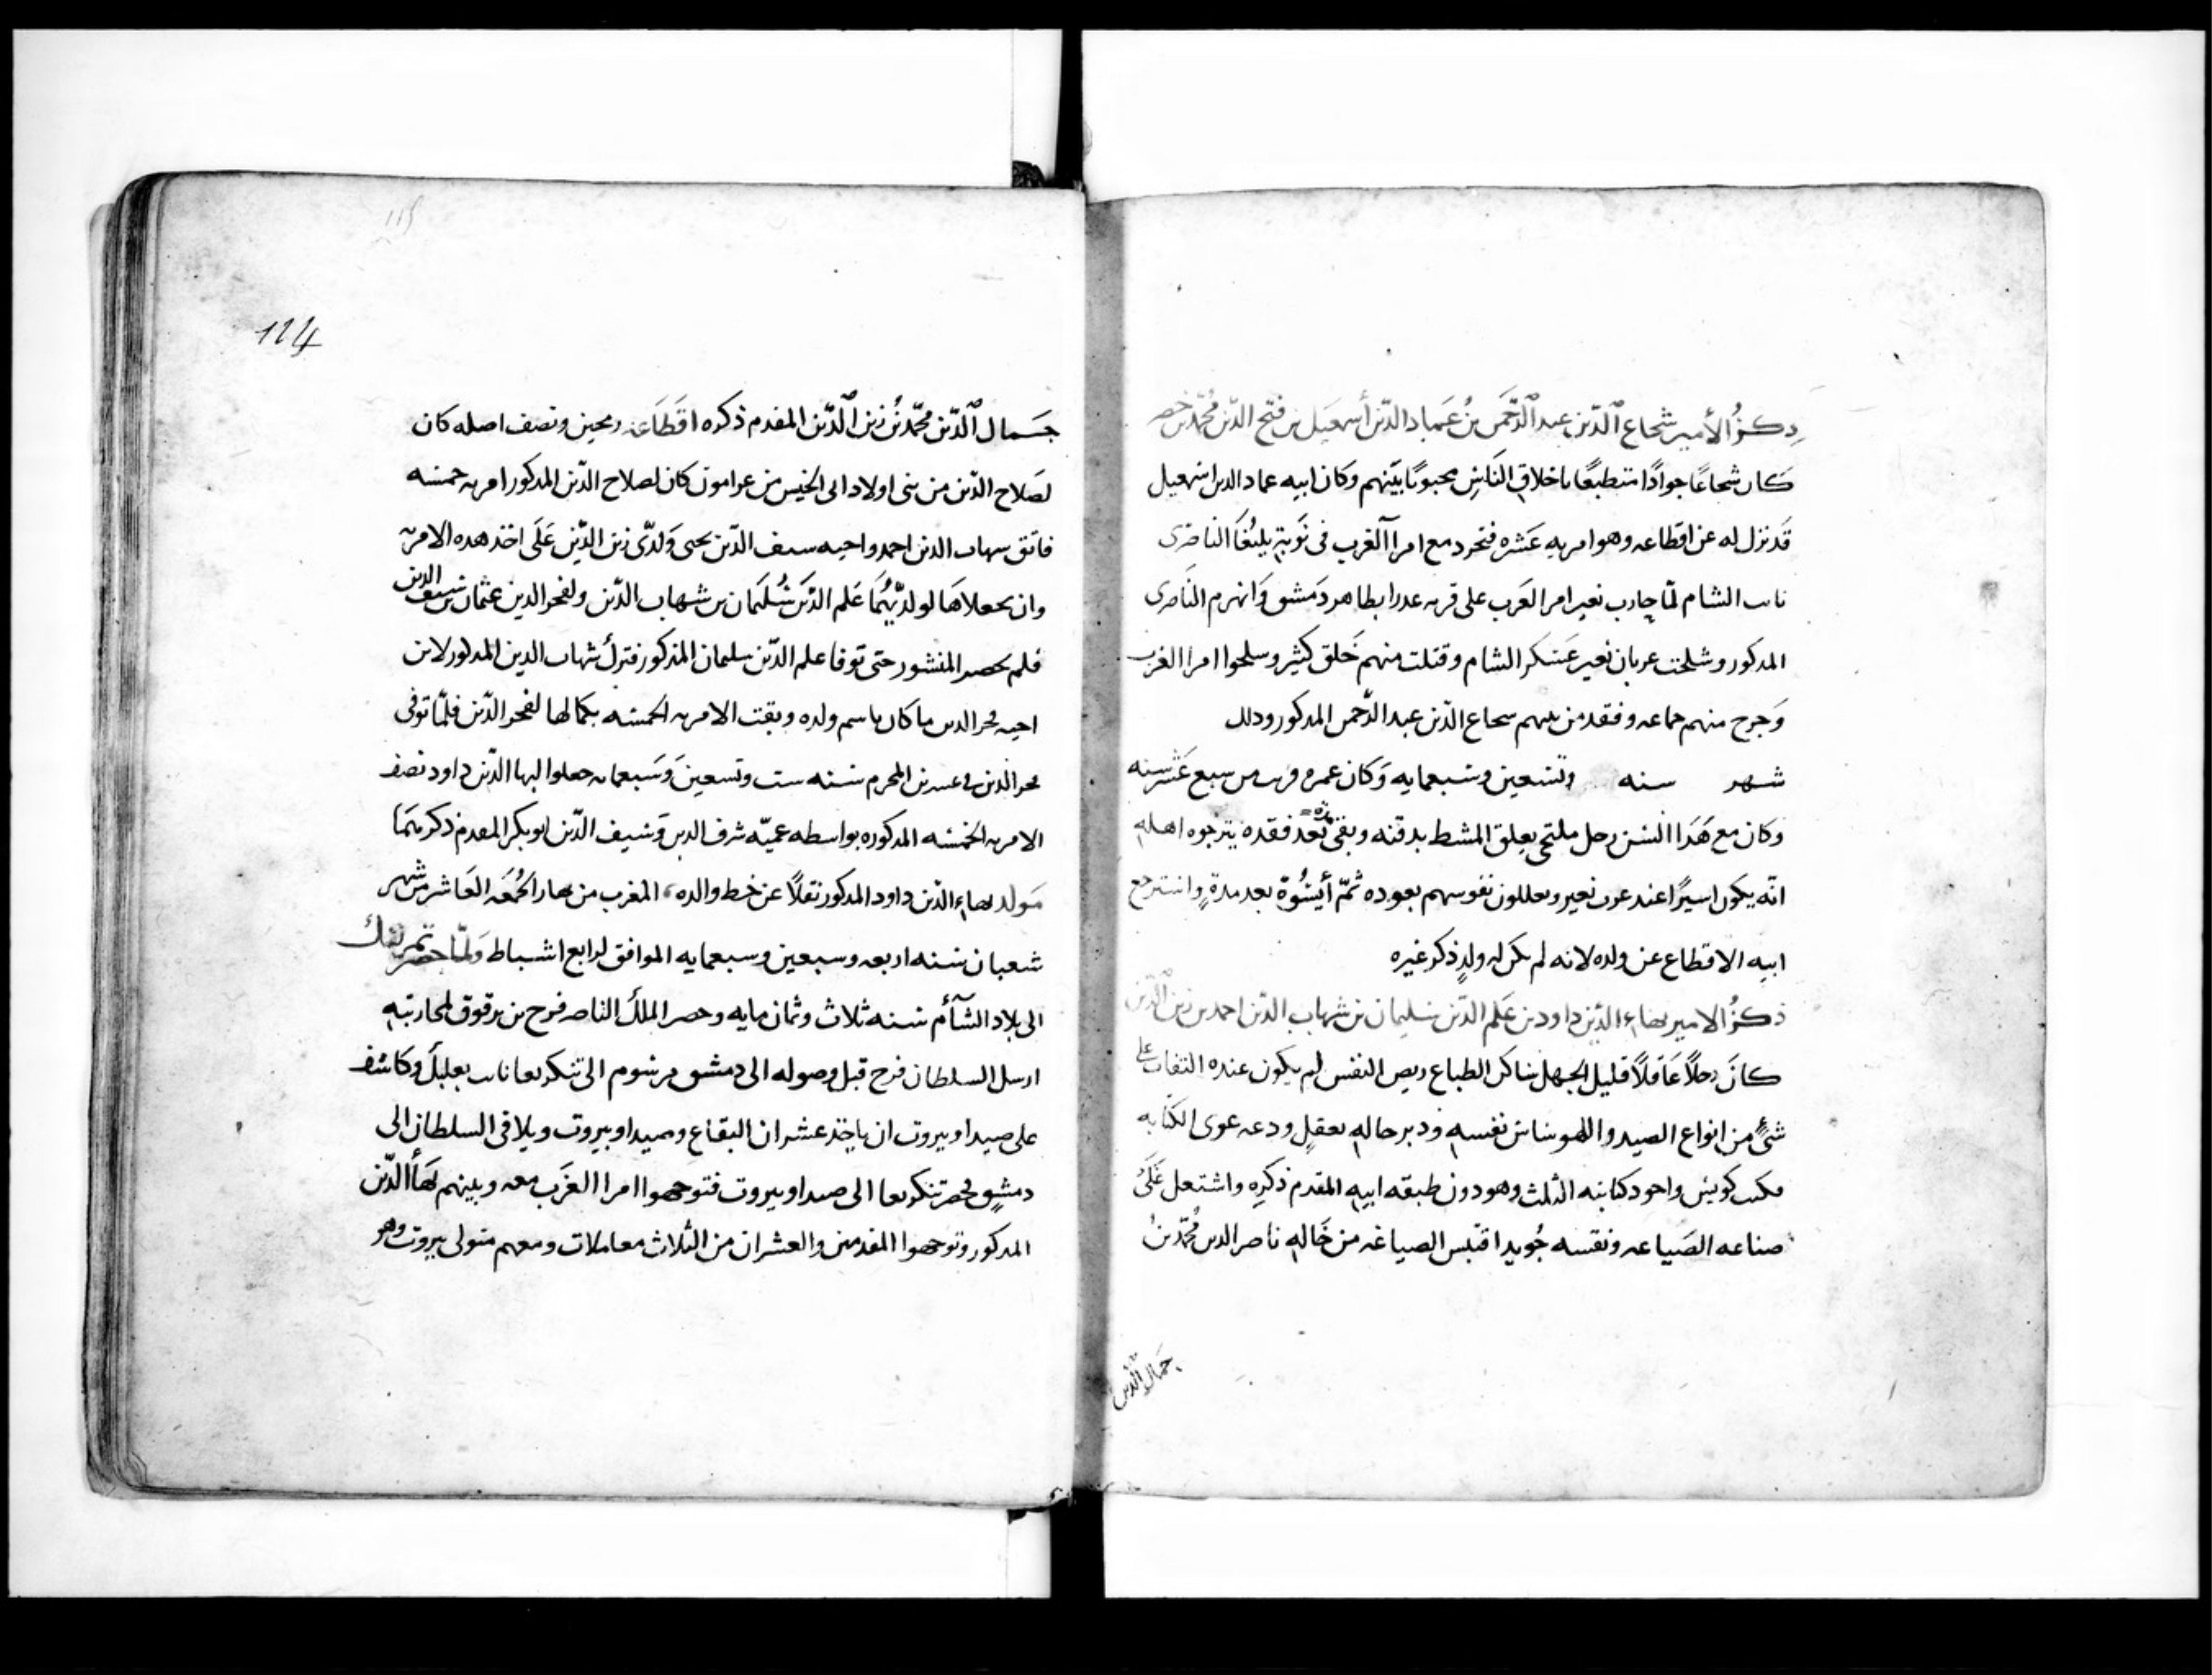 ذكرُ الأمير شجاع ٱلدّين عبد ٱلرّحمن بنُ عَماد الدّين أسمعيل بن فتح الدّين مُحمّد بن خضر
كان شجاعًا جوادًا متطبعًا باخلاق النّاسِ محبوبًا بيَنهم وكان ابيه عماد الدين اسمعيل
قَد نزل له عن اقطاعه وهو امريه عَشره فتجرد مع امرآ الغرب فى نَوبَة يلبُغَا الناصرى
نايب الشام لمّا حارب نعير امير العَرب على قريه عدرا بظاهر دَمشق وَانهزم النَاصرى
المدكور وشلحت عربان نعير عَسَكر الشام وقتلت منهم خَلق كثير وسلحوا امرا الغرب
وَجرح منهم جماعه وفقد من بينهم شجاع الدّين عبد الرّحمن المدكور ودلك
شهر سنه وتسعين وسبعمايه وَكان عمره قريب من سبع عَشر سنه
وكان مع هَدَا السّن رجل ملتحى يعلق المشط بدقنه وبقى بَعد فقده يترجوه اهله
انّه يكون اسيرًا عند عرب نعير ويعللون نفوسهم بعوده ثمّ أيسُوهُ بعد مدةٍ واسترجع
ابيه الاقطاع عن ولده لانه لم يكن له ولدٍ ذكر غيره
ذكرُ الامير بهاء الدّين داود بن عَلم الدّين سليمان بن شهاب الدّين احمد بن زين ٱلدّين
كانَ رجلاً عَاقلاً قليل الجهل ساكن الطباع ريص النفس لم يكون عنده التفات على
شئ من انواع الصيد واللهو ساس نفسه ودبر حاله بعقلٍ ودعه عوى الكتابه
مكتب كويس واجود كتابته الثلث وهو دون طبقه ابيه المقدم ذكره واشتعل عَلَىَ
صناعه الصَياعه ونفسه جُويد اقتبس الصياغه من خَاله ناصر الدين مُحمّد بنُ
جمال الدّين
124
جَمال ٱلدّين محمّد بنُ زين ٱلدّين المقدم ذكره اقَطَاعه رمحين ونصف اصله كان
لصَلاح الدّين من بنى اولاد ابى الجيس من عرامون كان لصلاح الدّين المدكور امريه خمسه
فاتفق شهاب الدين احمد واخيه سيف الدّين يحيى وَلدّى زين الدّين عَلَى اخذ هده الامريه
وان يجعلاهَا لولديّهُمَا عَلم الدّين سُليَمان بن شهاب الدّين ولفخر الدين عثمان بن سيف الدين
فلم يحضر المنشور حتى توفا علم الدّين سليمان المذكور فترك شهاب الدين المدكور لابن
اخيه فخر الدين ما كان باسم ولده وبقت الامريه الخمسه بكمالها لفخر الدّين فلمّا توفى
فخر الدّين فى عشرين المحرم سَنه ست وتسعينَ وَسَبعمايه جعلوا لبها الدّين داود نصف
الامريه الخمسَه المدكوره بواسطه عميّه شرف الدين وَسَيف الدّين ابو بكر المقدم ذكرهمَا
مَولد بهاء الدّين داود المدكور نقلاً عن خط والده المغرب من نهار الجُمعَه العَاشر من شهر
شعبان سَنه اربعه وسبعين وسبعمايه الموافق لرابع اشباط وَلمّا حضر تمرلنك
الى بلاد الشَآم سَنه ثلاث وثمان مايه وحضر الملك الناصر فرج بن برقوق لمحاربتهِ
ارسل السلطان فرج قبل وصوله الى دمشق مرسوم الى تنكربعا نايب بعلبك وكاشف
على صيدا وبيروت ان ياخد عشران البقاع وصيدا وبيروت ويلاقى السلطان الى
دمشق فحضر تنكربعا الى صيدا وبيروت فتوجهوا امرا الغَرب معه وبينهم بَهَأ الدّين
المدكور وتوجهوا المقدمين والعشران من الثلاث معاملات ومعهم متولى بيروت وهو